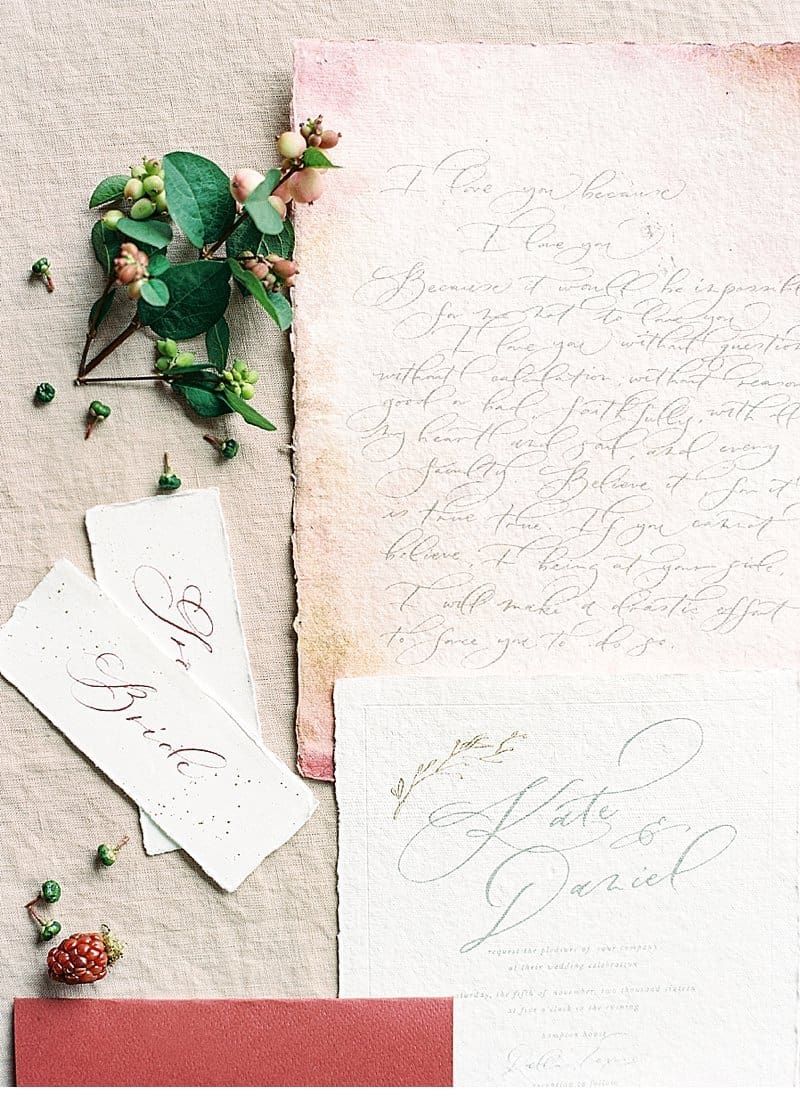 I love you because
I love you
Because it would be impossible
for me not to love you
I love you without question
without calculation, without reason
good or bad faithfully, with all
my heart and soul, and every
faculty. Believe it, for it
is true true. If you cannot
believe, I being at your side,
I will make a drastic effort
to force you to do so.
Gro
Bride
Kate
&
Daniel
request the pleasure of your company
at their wedding celebration
saturday, the fifth of november, two thousand sixteen
at five o'clock in the evening
hampton house
reception to follow